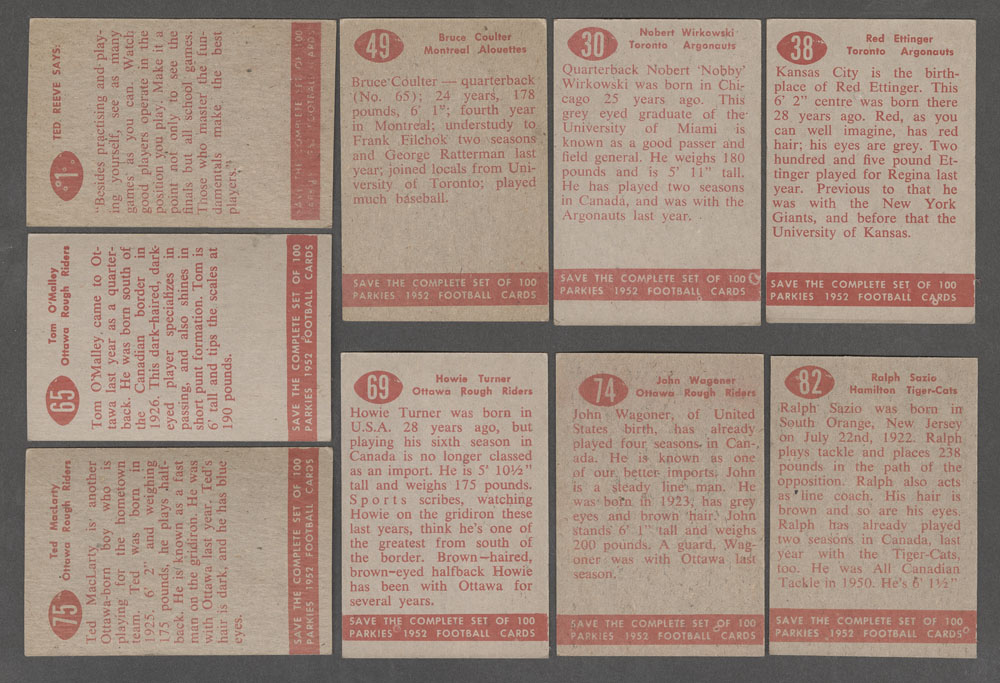 1
TED REEVE SAYS:
"Besides practising and play-
ing yourself, see as many
games as you can. Watch
good players operate in the
position you play. Make it a
point not only to see the
finals but all school games.
Those who master the fun-
damentals make the best
players."
SAVE THE COMPLETE SET OF 100
PARKIES 1952 FOOTBALL CARDS
65
Tom O'Malley
Ottawa Rough Riders
Tom O'Malley came to Ot-
tawa last year as a quarter-
back. He was born south of
the Canadian border in
1926. This dark-haired, dark-
eyed player specializes in
passing, and also shines in
short punt formation. Tom is
6' tall and tips the scales at
190 pounds.
SAVE THE COMPLETE SET OF 100
PARKIES 1952 FOOTBALL CARDS
75
Ted MacLarty
Ottawa Rough Riders
Ted MacLarty is another
Ottawa-born boy who is
playing for the hometown
team. Ted was born in
1925. 6' 2" and weighing
175 pounds, he plays half-
back. He is known as a fast
man on the gridiron. He was
with Ottawa last year. Ted's
hair is dark, and he has blue
eyes.
SAVE THE COMPLETE SET OF 100
PARKIES 1952 FOOTBALL CARDS
49
Bruce Coulter
Montreal Alouettes
Bruce Coulter — quarterback
(No. 65); 24 years, 178
pounds, 6' 1"; fourth year
in Montreal; understudy to
Frank Filchok two seasons
and George Ratterman last
year; joined locals from Uni-
versity of Toronto; played
much baseball.
SAVE THE COMPLETE SET OF 100
PARKIES 1952 FOOTBALL CARDS
30
Nobert Wirkowski
Toronto Argonauts
Quarterback Nobert 'Nobby'
Wirkowski was born in Chi-
cago 25 years ago. This
grey eyed graduate of the
University of Miami is
known as a good passer and
field general. He weighs 180
pounds and is 5' 11" tall.
He has played two seasons
in Canada, and was with the
Argonauts last year.
SAVE THE COMPLETE SET OF 100
PARKIES 1952 FOOTBALL CARDS
38
Red Ettinger
Toronto Argonauts
Kansas City is the birth-
place of Red Ettinger. This
6' 2" centre was born there
28 years ago. Red, as you
can well imagine, has red
hair; his eyes are grey. Two
hundred and five pound Et-
tinger played for Regina last
year. Previous to that he
was with the New York
Giants, and before that the
University of Kansas.
SAVE THE COMPLETE SET OF 100
PARKIES 1952 FOOTBALL CARDS
69
Howie Turner
Ottawa Rough Riders
Howie Turner was born in
U.S.A. 28 years ago, but
playing his sixth season in
Canada is no longer classed
as an import. He is 5' 10½"
tall and weighs 175 pounds.
Sports scribes, watching
Howie on the gridiron these
last years, think he's one of
the greatest from south of
the border. Brown-haired,
brown-eyed halfback Howie
has been with Ottawa for
several years.
SAVE THE COMPLETE SET OF 100
PARKIES 1952 FOOTBALL CARDS
74
John Wagoner
Ottawa Rough Riders
John Wagoner, of United
States birth, has already
played four seasons in Can-
ada. He is known as one
of our better imports. John
is a steady line man. He
was born in 1923, has grey
eyes and brown hair. John
stands 6' 1" tall and weighs
200 pounds. A guard, Wag-
oner was with Ottawa last
season.
SAVE THE COMPLETE SET OF 100
PARKIES 1952 FOOTBALL CARDS
82
Ralph Sazio
Hamilton Tiger-Cats
Ralph Sazio was born in
South Orange, New Jersey
on July 22nd, 1922. Ralph
plays tackle and places 238
pounds in the path of the
opposition. Ralph also acts
as line coach. His hair is
brown and so are his eyes.
Ralph has already played
two seasons in Canada, last
year with the Tiger-Cats,
too. He was All Canadian
Tackle in 1950. He's 6' 1½"
SAVE THE COMPLETE SET OF 100
PARKIES 1952 FOOTBALL CARDS